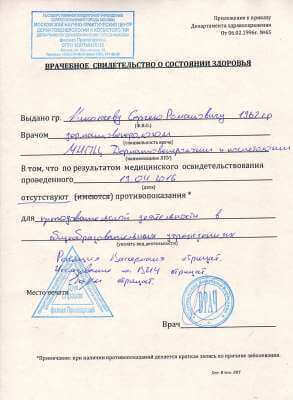 Приложение к приказу
Департамента здравоохранения
От 06.02.1996г. №65
ВРАЧЕБНОЕ СВИДЕТЕЛЬСТВО О СОСТОЯНИИ ЗДОРОВЬЯ
Выдано гр. Николаеву Сергею Романовичу 1962 гр
(Ф.И.О.)
Врачом дерматовенерологом
(специальность врача)
МНПЦ Дерматовенерологии и косметологии
(наименование ЛПУ)
В том, что по результатом медицинского освидетельствования
проведенного 19.04.2016
(дата)
отсутствуют (имеются) противопоказания *
для преподавательской деятельности в
общеобразовательных учреждениях
(указать вид деятельности)
Реакция Вассермана отрицат.
Исследование на ИППП отрицат.
отрицат.
Место печати
филиал Пролетарский
ВРАЧ
Врач
*Примечание: при наличии противопоказаний делается краткая запись по причине заболевания.